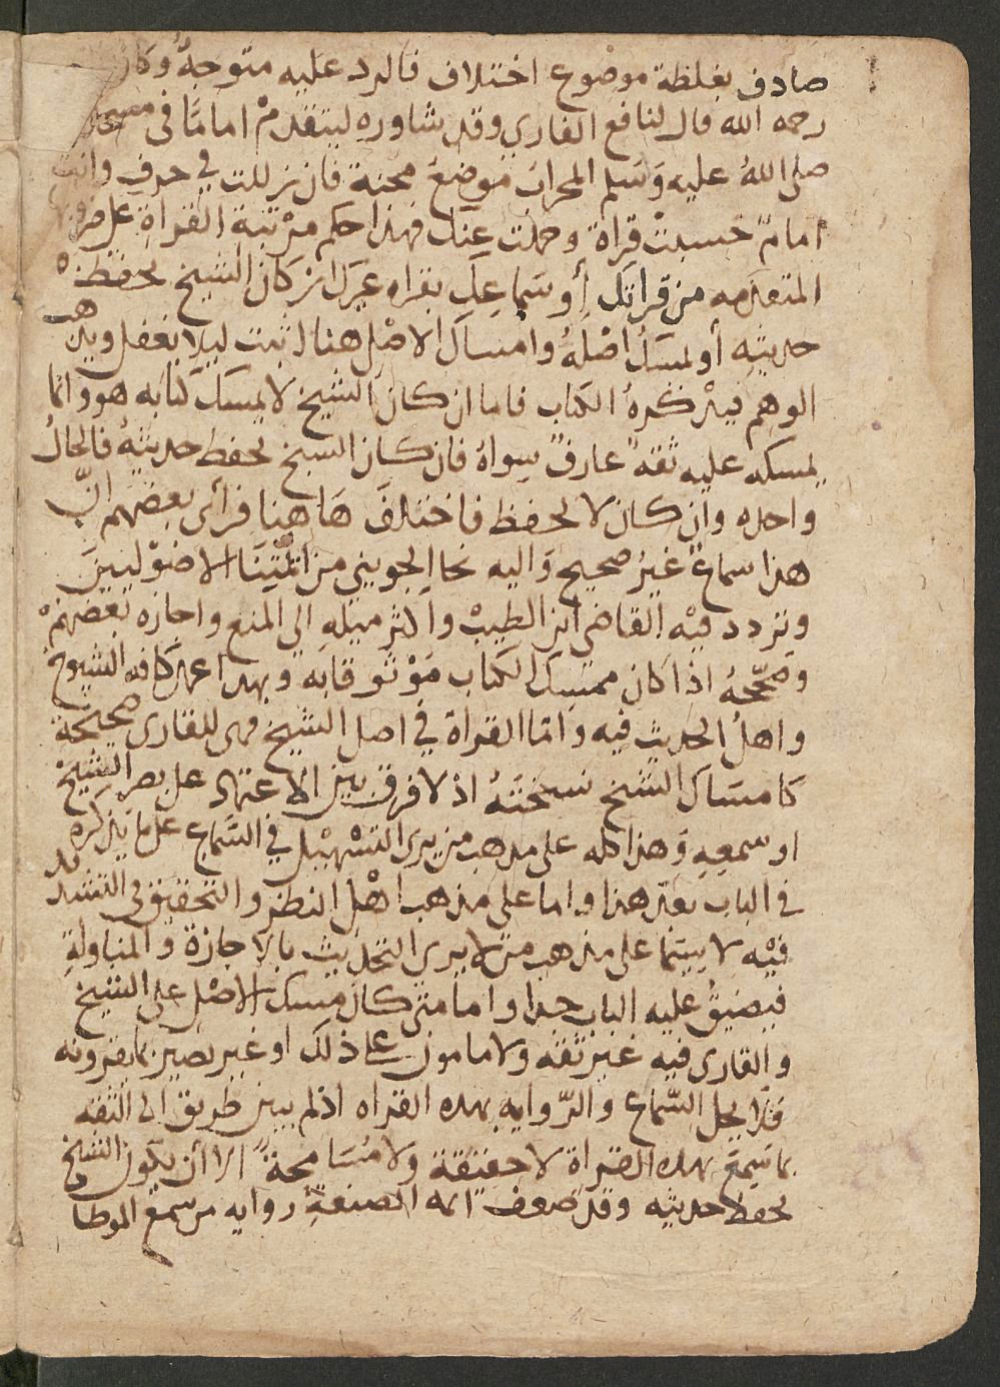 صادف بغلظة موضوع اختلاف فالرد عليه متوجهٌ وكان
رحمه الله قال لنافع القاري وقد شاوره ليتقدم امامًا في مسجد
صلى اللهُ عليه وَسَلم المحراب موضعَ محنة فان زللت في حرف وانت
امامٌ حُسبتْ قراة وحملت عنك فهذا حكم مرتبة القراةِ على
المتقدمه من قراتك أو سَماعك بقراه غيرك ان كان الشيخ يحفظ
حديثه أو يمسك اصْلهُ وامساك الاصْل هنا اثبت ليلا يغفل ويذهب
الوهم فيذكرهُ الكتاب فاما ان كان الشيخ لا يمسك كتابه هو وانما
يمسكه عليه ثقةٌ عارفٌ سِواهُ فان كان الشيخ يحفظ حديثهُ فالحالُ
واحده وان كان لا يحفظ فاختلفَ هَاهنا فرأى بعضهم انّ
هذا سماعٌ غيرُ صحيح وَاليه نحا الجويني من ائمّتِنَا الاصُوْليينَ
وتردد فيْه القاضي ابن الطيبْ واكثر ميله الى المنع واجازه بعضهمْ
وصحّحهُ اذا كان ممسِك الكتاب مَوْثوقا به وبهذا عمل كافه الشيوخ
واهلُ الحديث فيه واما القراة في اصل الشيخ فهى للقارى صحيحَة
كامسَاك الشيخ نسختهُ اذ لا فرق بين الاعتماد على بصر الشيخْ
او سمعِهِ وَهذا كله على مذهب من يرى التسْهيْل في السَّماع على ما نذكره
في الباب بعد هذا واما على مذهب اهْل النظر والتحقيق في التشديد
فيْه لا سيّما على مذهب من لا يرى التحديث بالاجازة والمناولةِ
فيضيقُ عليه الباب جدا واما متى كان مُمسك الاصْل على الشيخ
والقارى فيه غير ثقه ولا مامون على ذلك او غير بصير بما يقرونه
فلا يحل السّماع والرّوايه بهذه القراه اذ لم يبين طريق الى الثقه
بما سَمعَ بهذه القراة لا حقيقة ولا مُسَامحةً الا أن يكون الشيخ
يحفظ حديثه وقد ضعف ائمه الصنعةِ روايه من سمع الموطا